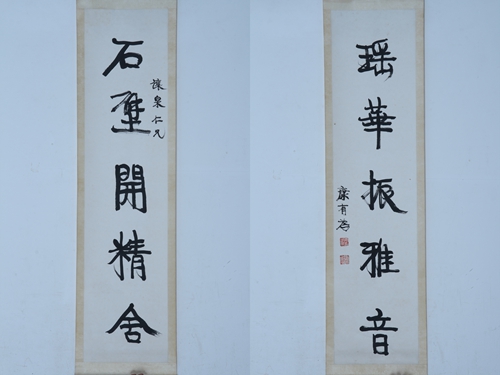 石壁開精舍
泉仁兄
瑶華振雅音
康有為